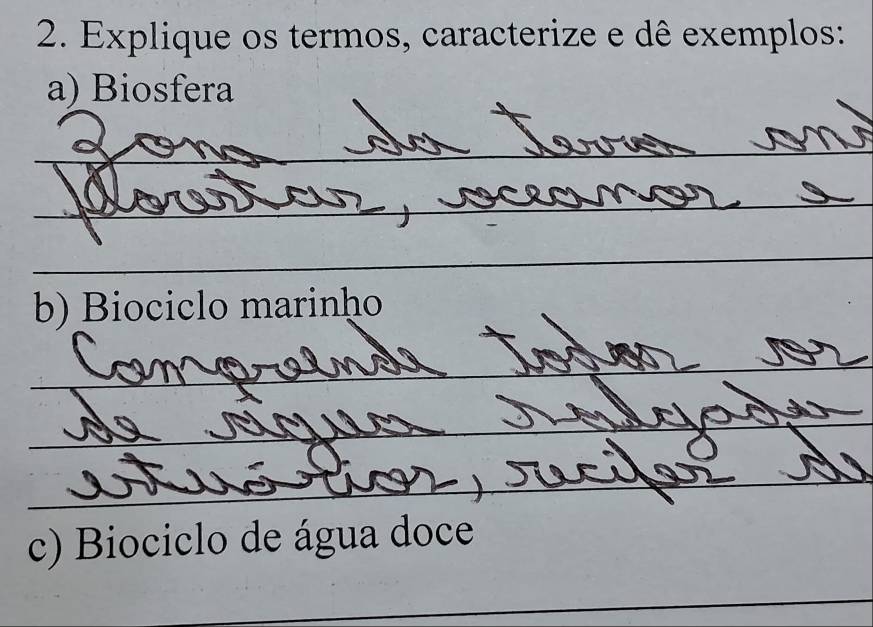 2. Explique os termos, caracterize e dê exemplos:
a) Biosfera
Zona da terra ond
florestas, oceanos e
b) Biociclo marinho
Compreende todos os
de água salgada
estuários, recifes de
c) Biociclo de água doce